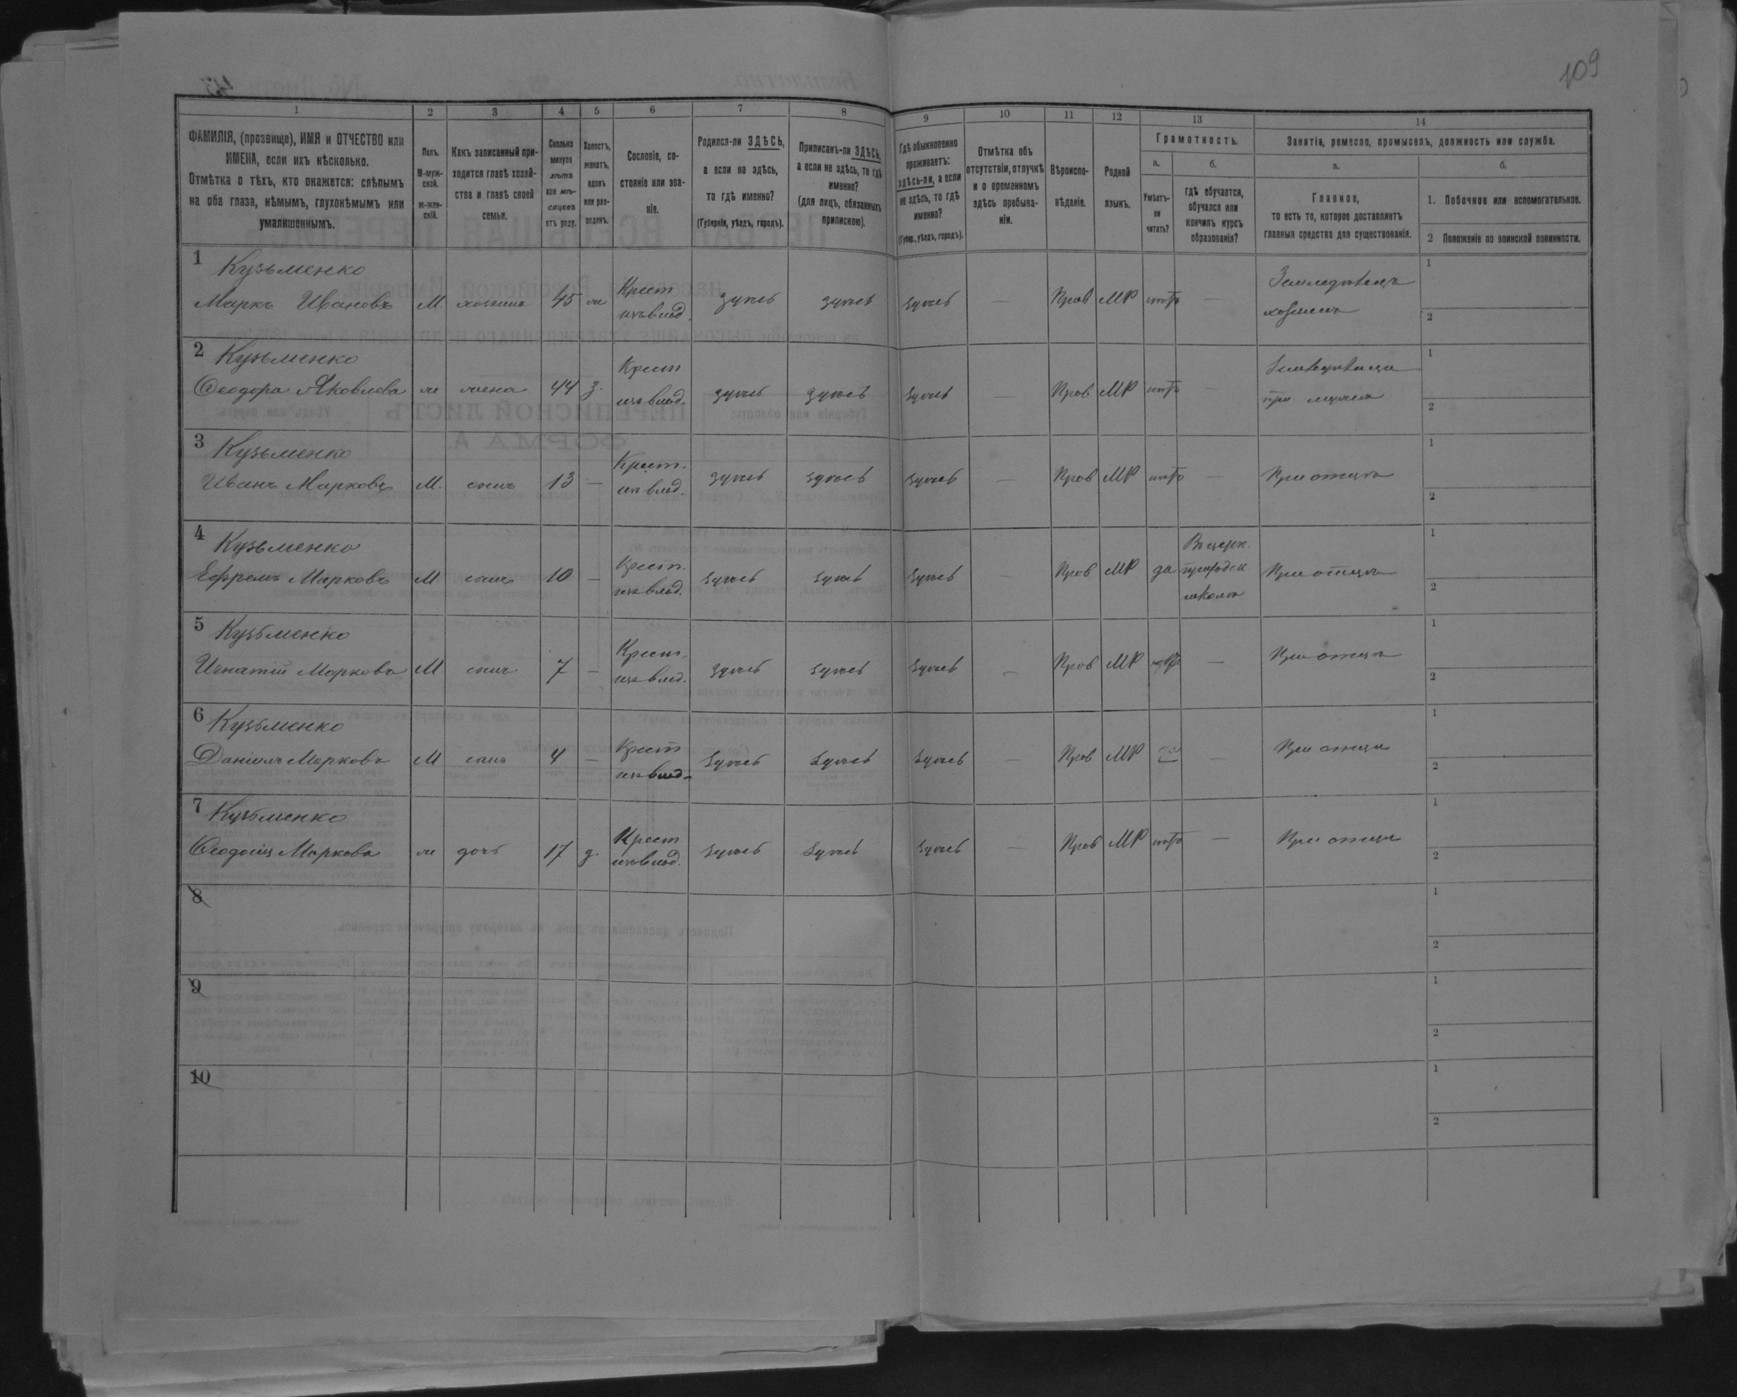 109
1 2 3 4 5 6 7 8 9 10 11 12 13 14
ФАМИЛІЯ, (прозвище), ИМЯ и ОТЧЕСТВО или
ИМЕНА, если ихъ нѣсколько.
Отмѣтка о тѣхъ, кто окажется: слѣпымъ
на оба глаза, нѣмымъ, глухонѣмымъ или
умалишеннымъ.
Полъ.
М-муж-
ской.
ж-жен-
скій.
Какъ записанный при-
ходится главѣ хозяй-
ства и главѣ своей
семьи.
Сколько
минуло
лѣтъ
или мѣ-
сяцевъ
отъ роду.
Холостъ,
женатъ,
вдовъ
или раз-
веденъ.
Сословіе, со-
стояніе или зва-
ніе.
Родился-ли ЗДѢСЬ,
а если не здѣсь,
то гдѣ именно?
(Губернія, уѣздъ, городъ).
Приписанъ-ли ЗДѢСЬ,
а если не здѣсь, то гдѣ
именно?
(для лицъ, обязанныхъ
припискою).
Гдѣ обыкновенно
проживаетъ:
здѣсь-ли, а если
не здѣсь, то гдѣ
именно?
(Губер., уѣздъ, городъ).
Отмѣтка объ
отсутствіи, отлучкѣ
и о временномъ
здѣсь пребыва-
ніи.
Вѣроиспо-
вѣданіе.
Родной
языкъ.
Грамотность.
а. б.
Умѣетъ-
ли
читать?
гдѣ обучается,
обучался или
кончилъ курсъ
образованія?
Занятіе, ремесло, промыселъ, должность или служба.
а. б.
Главное,
то есть то, которое доставляетъ
главныя средства для существованія.
1. Побочное или вспомогательное.
2 Положеніе по воинской повинности.
1 Кузьменко
Маркъ Ивановъ М. хозяинъ 45 ж Крест. изъ влад. здѣсь здѣсь здѣсь — Прав МР нѣтъ — Земледѣлецъ хозяинъ 1 2
2 Кузьменко
Ѳеодора Яковлева ж жена 44 з. Крест изъ влад. здѣсь здѣсь здѣсь — Прав МР нѣтъ — при мужѣ 1 2
3 Кузьменко
Иванъ Марковъ М. сынъ 13 — Крест. изъ влад. здѣсь здѣсь здѣсь — Прав МР нѣтъ — При отцѣ 1 2
4 Кузьменко
Ефремъ Марковъ М сынъ 10 — Крест. изъ влад. здѣсь здѣсь здѣсь — Прав МР да Въ церк. приходск школѣ При отцѣ 1 2
5 Кузьменко
Игнатій Марковъ М сынъ 7 — Крест. изъ влад. здѣсь здѣсь здѣсь — Прав МР нѣтъ — При отцѣ 1 2
6 Кузьменко
Даніилъ Марковъ М сынъ 4 — Крест изъ влад. здѣсь здѣсь здѣсь — Прав МР — При отцѣ 1 2
7 Кузьменко
Маркова ж дочь 17 д. Крест изъ влад. здѣсь здѣсь здѣсь — Прав МР нѣтъ — При отцѣ 1 2
8 1 2
9 1 2
10 1 2